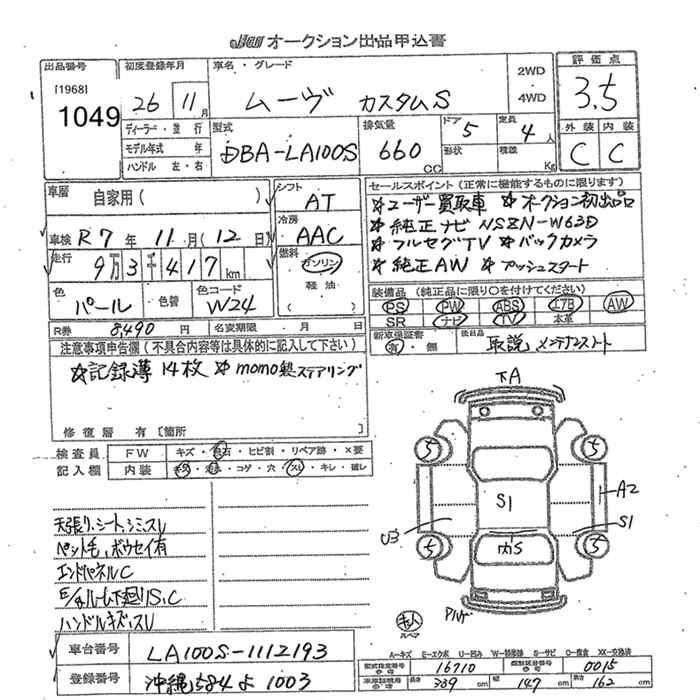 オークション出品申込書
出品番号 初度登録年月 車名・グレード 評価点
[1968] 1049
26年 11月
ムーヴ カスタムS
2WD
4WD
3.5
外装 内装
C C
ディーラー・並行
モデル年式 年
ハンドル 左・右
型式
DBA-LA100S
排気量
660 CC
ドア 5
形状
定員 4人
積載 Kg
車歴 自家用( )
車検 R7年 11月(12日)
走行 9万3千417km
色 パール 色替
色コード W24
R券 8,490円 名変期限 月 日
シフト AT
冷房 AAC
燃料 ガソリン
軽油
( )
セールスポイント(正常に機能するものに限ります)
☆ユーザー買取車 ☆オークション初出品
☆純正ナビ NSZN-W63D
☆フルセグTV ☆バックカメラ
☆純正AW ☆プッシュスタート
装備品(純正品に限り○を付けてください)
PS PW ABS エアB AW
SR ナビ TV 本革
新車保証書 有・無
後日品 取説 メンテナンスノート
注意事項申告欄(不具合内容等は具体的に記入して下さい)
☆記録簿14枚 ☆momo製ステアリング
修復歴 有[箇所
検査員記入欄
FW キズ・飛石・ヒビ割・リペア跡・×要
内装 キズ・汚れ・コゲ・穴・スレ・キレ・破レ
天張り、シート、シミ、スレ
ペット毛、ボウセイ有
エンドパネルC
E/gルーム下廻りS、C
ハンドルキズ、スレ
下A
5 5
S1
A2
U3
S1
5 5
車台番号 LA100S-1112193
登録番号 沖縄584よ1003
A-キズ E-エクボ U-凹み W-補修跡 S-サビ C-腐食 XX-交換済
型式指定番号 16710 類別区分番号 0015
長さ 339cm 幅 147cm 高さ 162cm